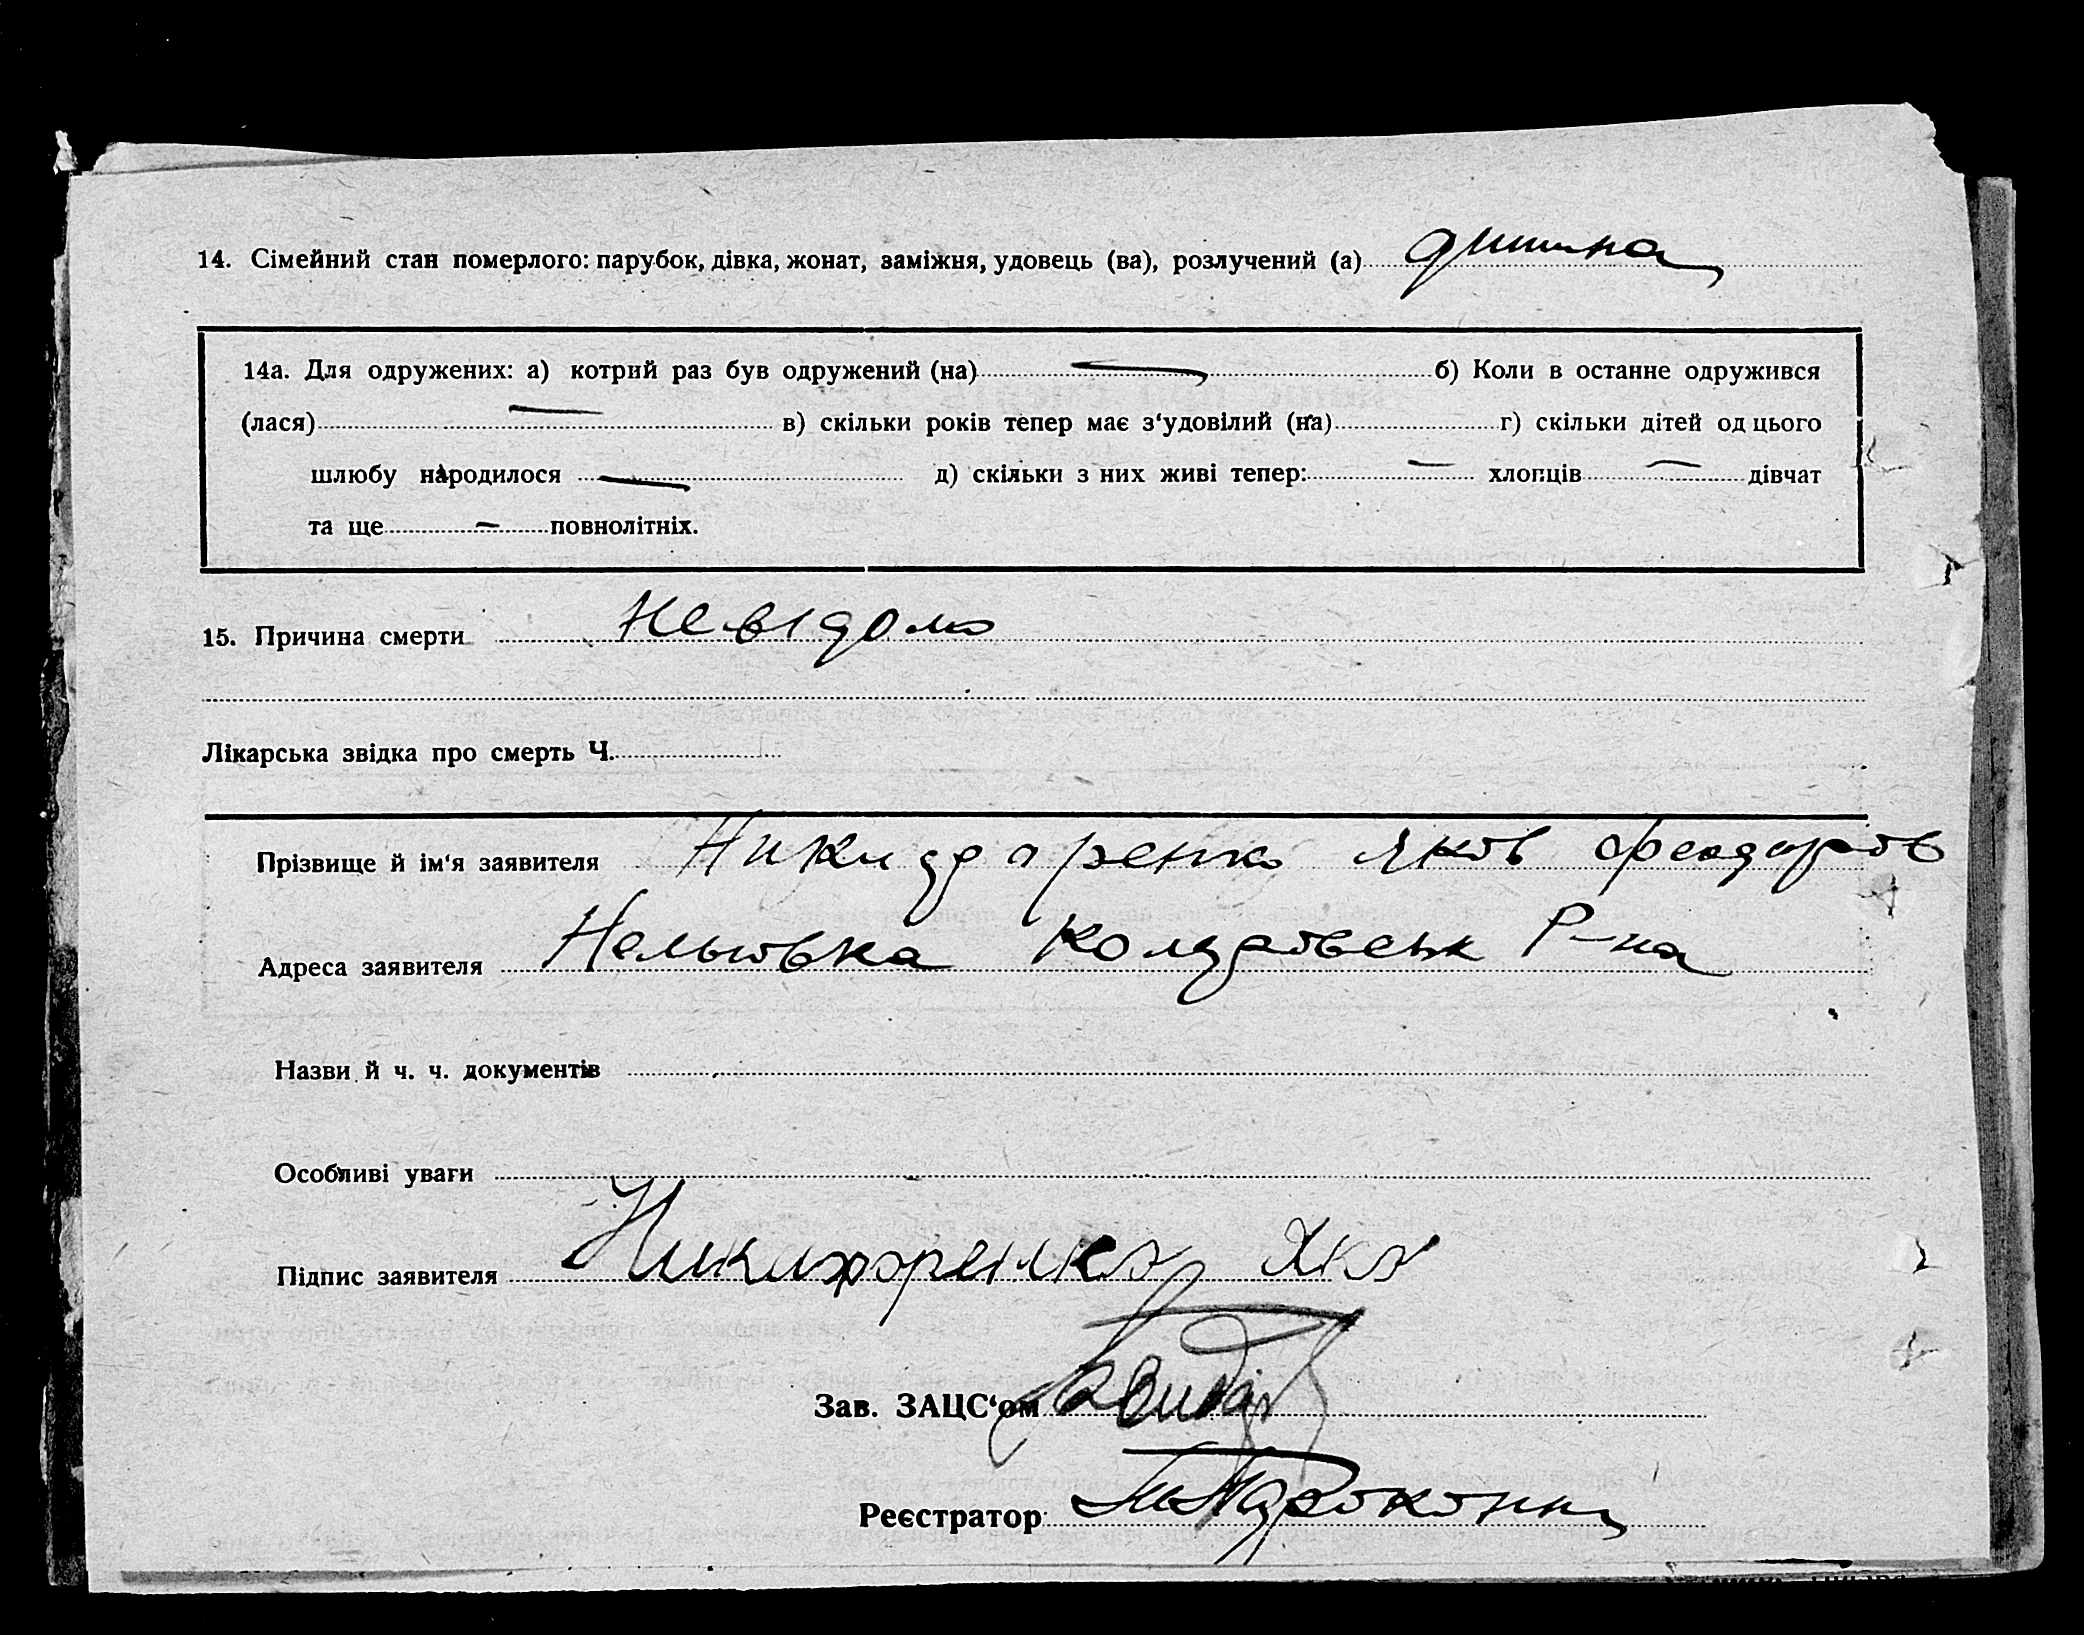 14. Сімейний стан померлого: парубок, дівка, жонат, заміжня, удовець (ва), розлучений (а) дитина
14а. Для одружених: а) котрий раз був одружений (на) — б) Коли в останне одружився
(лася) — в) скільки років тепер має з‘удовілий (на) г) скільки дітей од цього
шлюбу народилося — д) скільки з них живі тепер: — хлопців — дівчат
та ще — повнолітніх.
15. Причина смерти невідомо
Лікарська звідка про смерть Ч.
Прізвище й ім‘я заявителя Яков Феодоров
Адреса заявителя Р-на
Назви й ч. ч. документів
Особливі уваги
Підпис заявителя Никифоренко Яков
Зав. ЗАЦС‘ом
Реєстратор